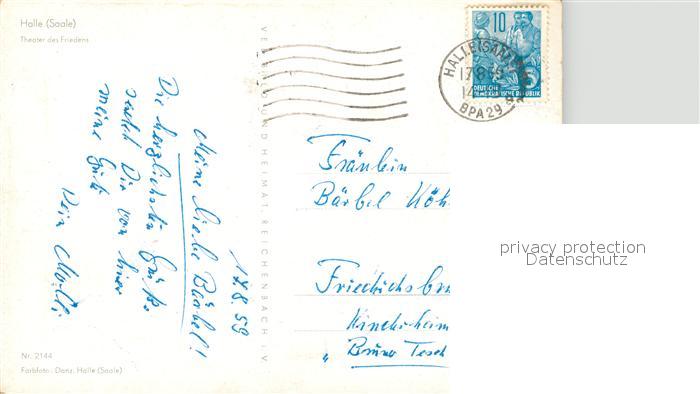 Halle (Saale)
Theater des Friedens
VERLAG BILD UND HEIMAT REICHENBACH I. V.
10
DEUTSCHE
DEMOKRATISCHE REPUBLIK
HALLE (SAALE)
17.8.59
14
BPA 29
17.8.59
Meine liebe Bärbel!
Die herzlichsten Grüße
sendet Dir von hier
meine
Dein
Fräulein
Bärbel Köh
Friedrichsbru
Kinderheim
" Bruno Tesch
privacy protection
Datenschutz
Nr. 2144
Farbfoto: Danz, Halle (Saale)